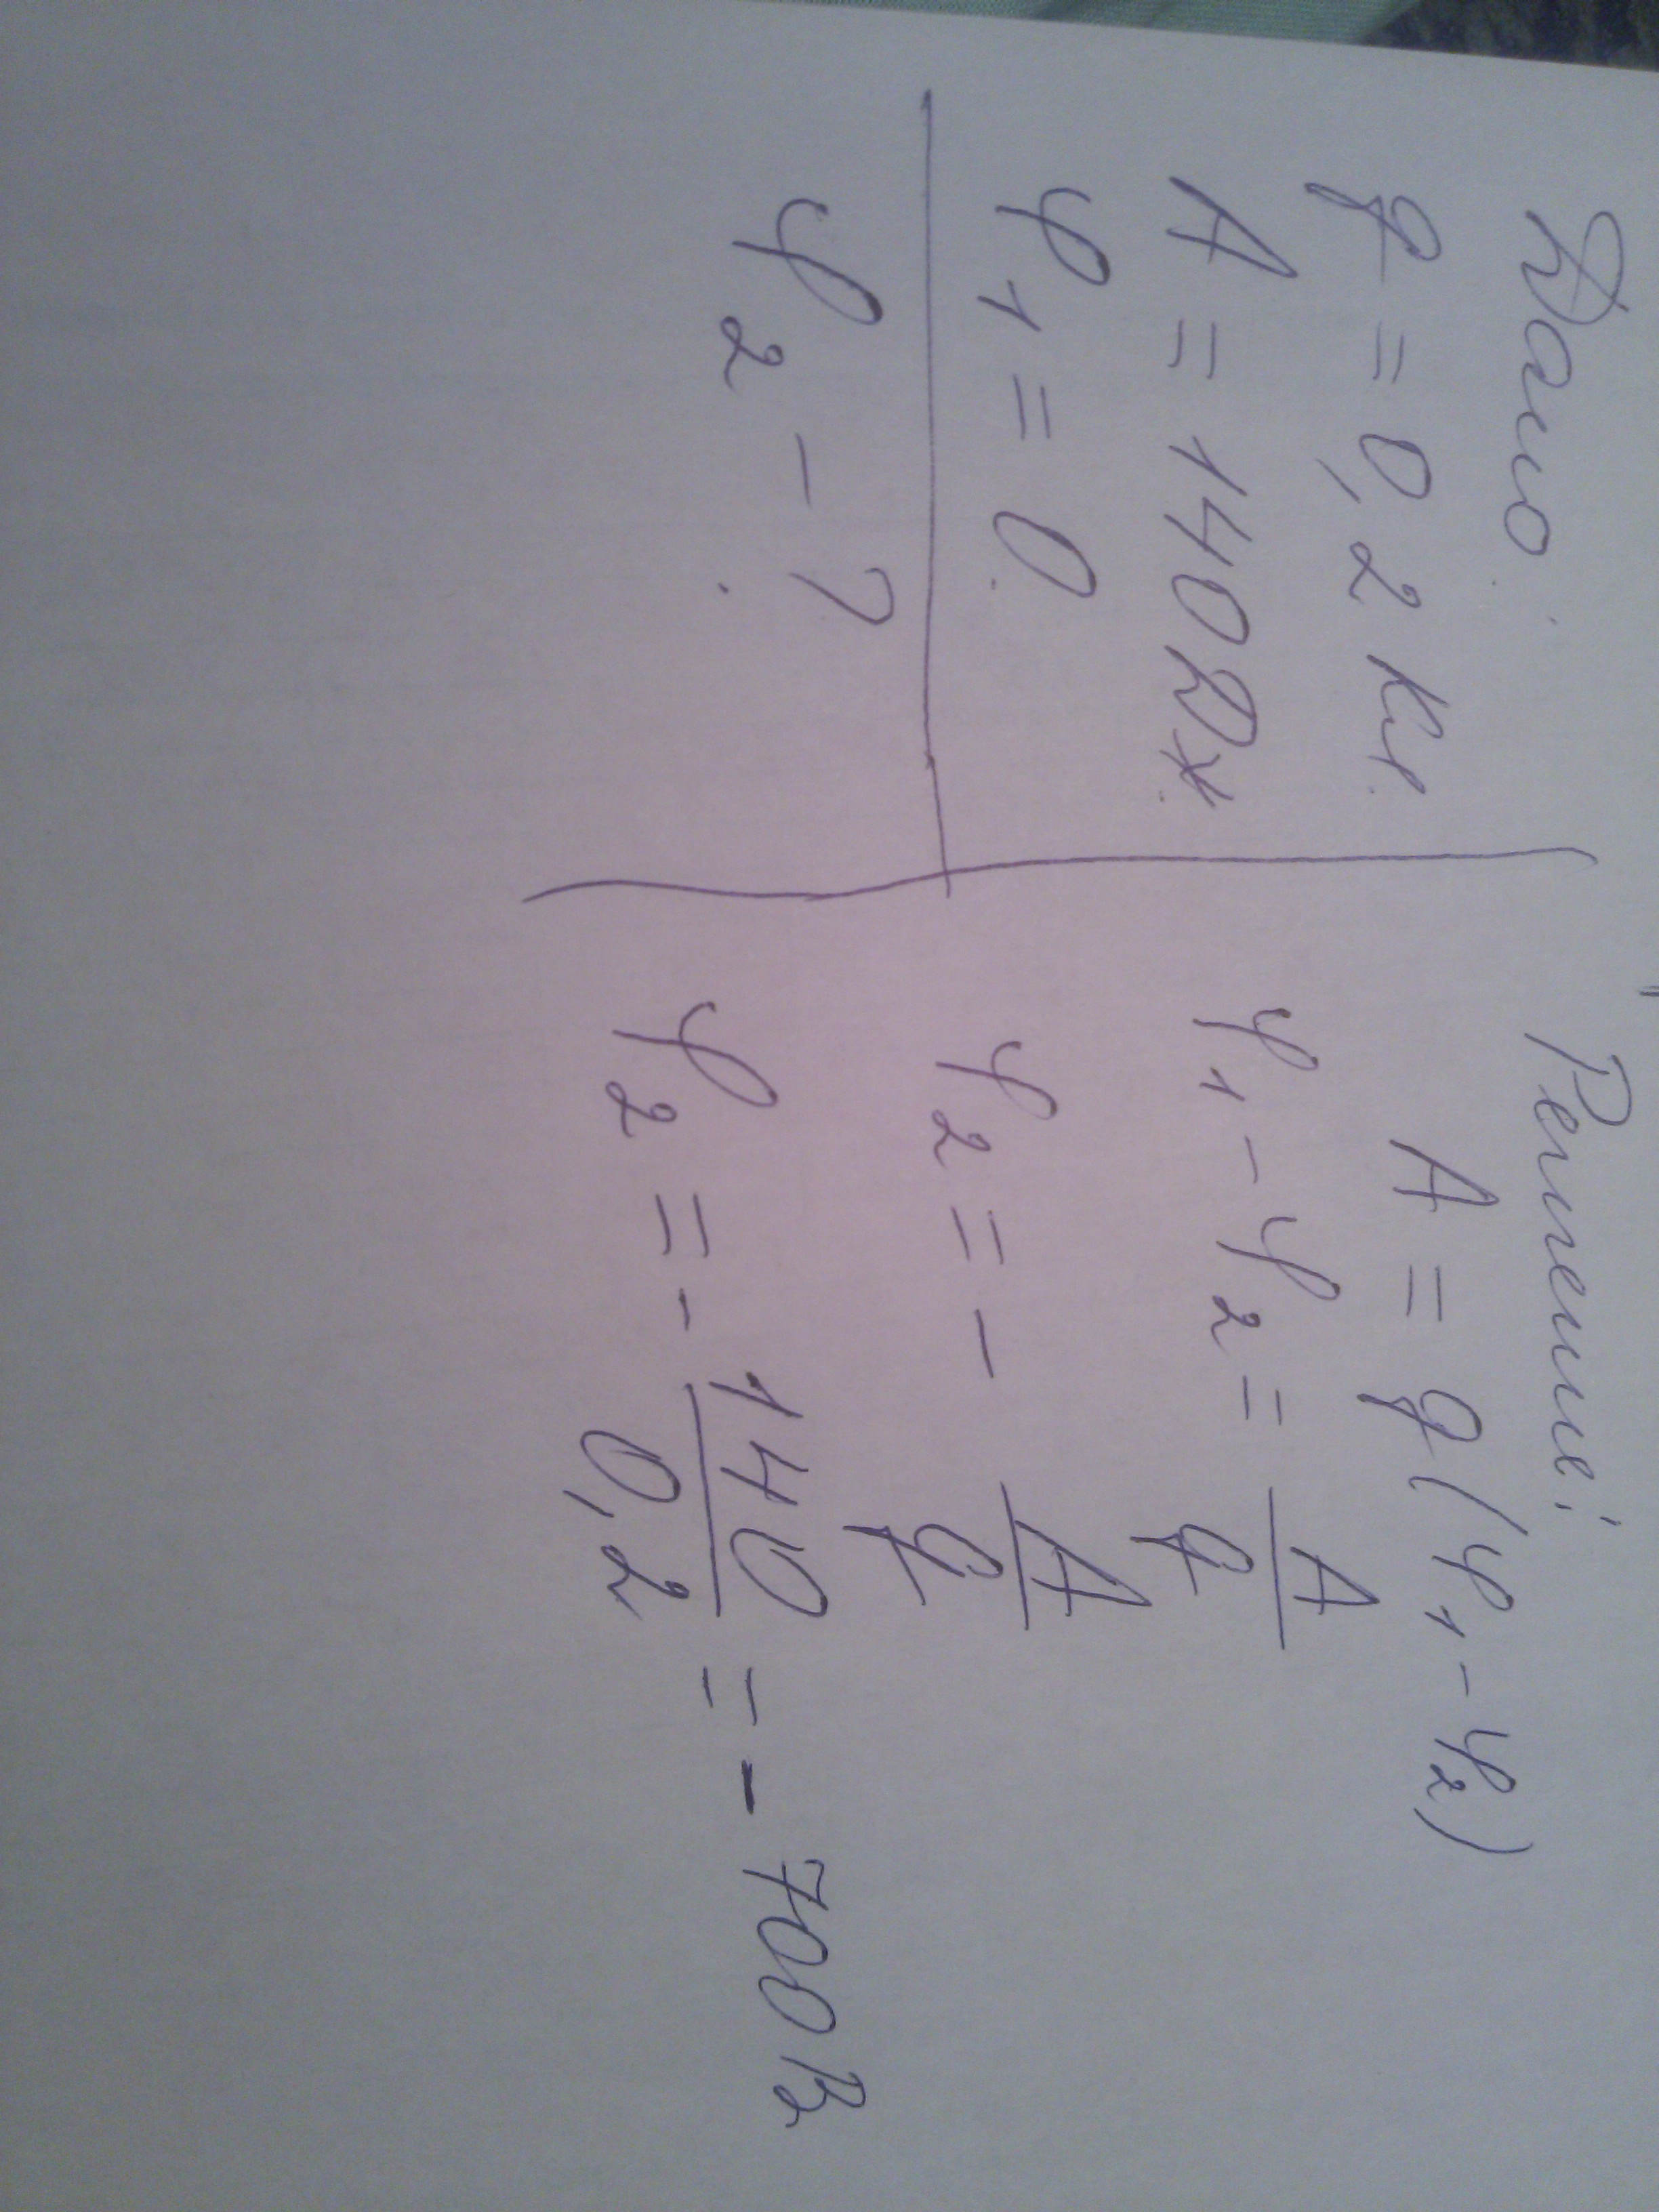 Дано:
q = 0,2 Кл.
A = 140 Дж.
φ₁ = 0.
φ₂ - ?
Решение:
A = q(φ₁ - φ₂)
φ₁ - φ₂ = A/q
φ₂ = - A/q
φ₂ = - 140/0,2 = - 700 В